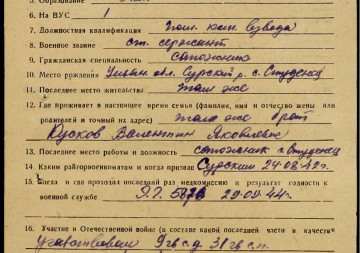 5. Образование
6. На ВУС 1
7. Должностная квалификация Пом. ком. взвода
8. Военное звание ст. сержант
9. Гражданская специальность
10. Место рождения Ульян. обл. Сурский р. с. Студенец
11. Последнее место жительства там же
12. Где проживает в настоящее время семья (фамилия, имя и отчество жены или
родителей и точный их адрес) там же брат
Кусков Валентин Яковлевич
13. Последнее место работы и должность с. Студенец
14. Каким райгорвоенкоматом и когда призван Сурским 24.08.42г.
15. Когда и где проходил последний раз медкомиссию и результат годности к
военной службе 29.09.44г.
16. Участие в Отечественной войне (в составе какой последней части и в качестве
Участвовал 9гв.с.д. 31гв.с.п.